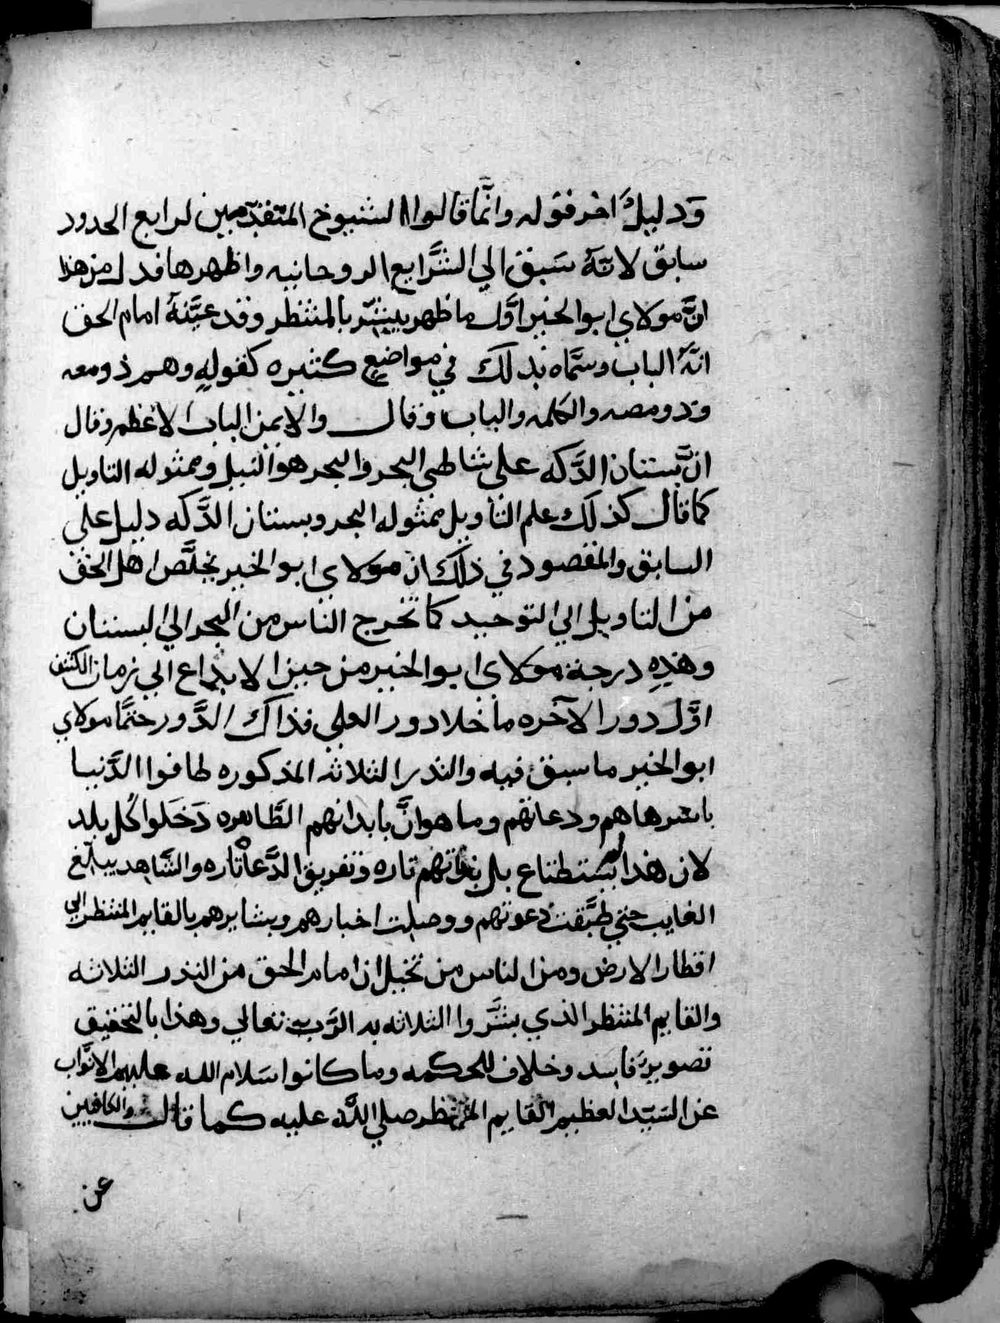 وَدليلٌ اخر قوله وانَّما قالوا الشيوخ المتقدّمين لرابع الحدود
سابق لانّهُ سَبق الي الشَّرايع الروحانيه واظهرها فدل من هذا
انَّ مولاي ابو الخير اوَّل ما ظهر يبشّر بالمنتظر وقد عيَّنهُ امام الحق
انّهُ الباب وسمَّاه بذلك في مواضع كثيره كقولهِ وهم ذو معه
وذو مصه والكلمه والباب وقال والايمن الباب الاعظم وقال
انَّ بستان الدَّكه علي شاطي البحر والبحر هو النيل وممثوله التاويل
كما قال كذلك علم التاويل ممثوله البحر وبستان الدَّكه دليل علي
السابق والمقصود في ذلك ان مولاي ابو الخير يخلَّص اهل الحق
من التاويل الي التوحيد كما تخرج الناس من البحر الي البستان
وهذهِ درجة مولاي ابو الخير من حين الابداع الي زمان الكشف
اوَّل دورا لآخره ما خلا دور العلي فذاك الدَّور حتمًا مولاي
ابو الخير ما سبق فيه والنذر الثلاثه المذكوره طافوا الدَّنيا
باسرها هم ودعاتهم وما هو انَّ بابدانهم الظَّاهره دَخَلوا كُل بلد
لان هذا لم يُستطاع بل بذاتهم تاره وتفريق الدَّعاة تاره والشَّاهد يبلّغ
الغايب حتي طبَّقت دعوتهم ووصلت اخبارهم وبشايرهم بالقايم المنتظر الي
اقطار الارض ومن الناس من تخيل ان امام الحق من النذر الثلاثه
والقايم المنتظر الذي بشَّروا الثلاثه به الرَّب تعالي وهذا بالتحقيق
تصويرٌ فاسد وخلاف للحكمه وما كانوا سَلام الله عليهم الا نوَّاب
عن السَيّد العظيم القايم المنتظر صلي اللَّه عليه كما قال والكافيين
عن